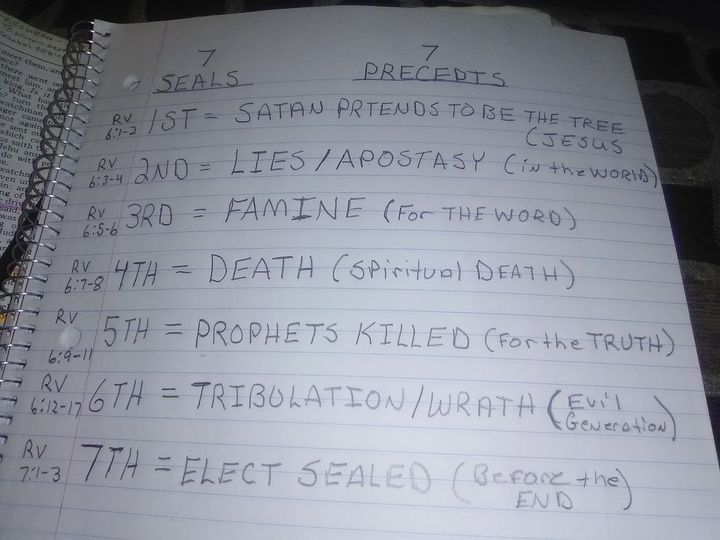 7 7
SEALS PRECEPTS
RV 6:1-2 1ST = SATAN PRTENDS TO BE THE TREE
(JESUS
RV 6:3-4 2ND = LIES / APOSTASY (in the WORLD)
RV 6:5-6 3RD = FAMINE (For THE WORD)
RV 6:7-8 4TH = DEATH (Spiritual DEATH)
RV 6:9-11 5TH = PROPHETS KILLED (For the TRUTH)
RV 6:12-17 6TH = TRIBULATION/WRATH (Evil
Generation)
RV 7:1-3 7TH = ELECT SEALED (Before the
END)